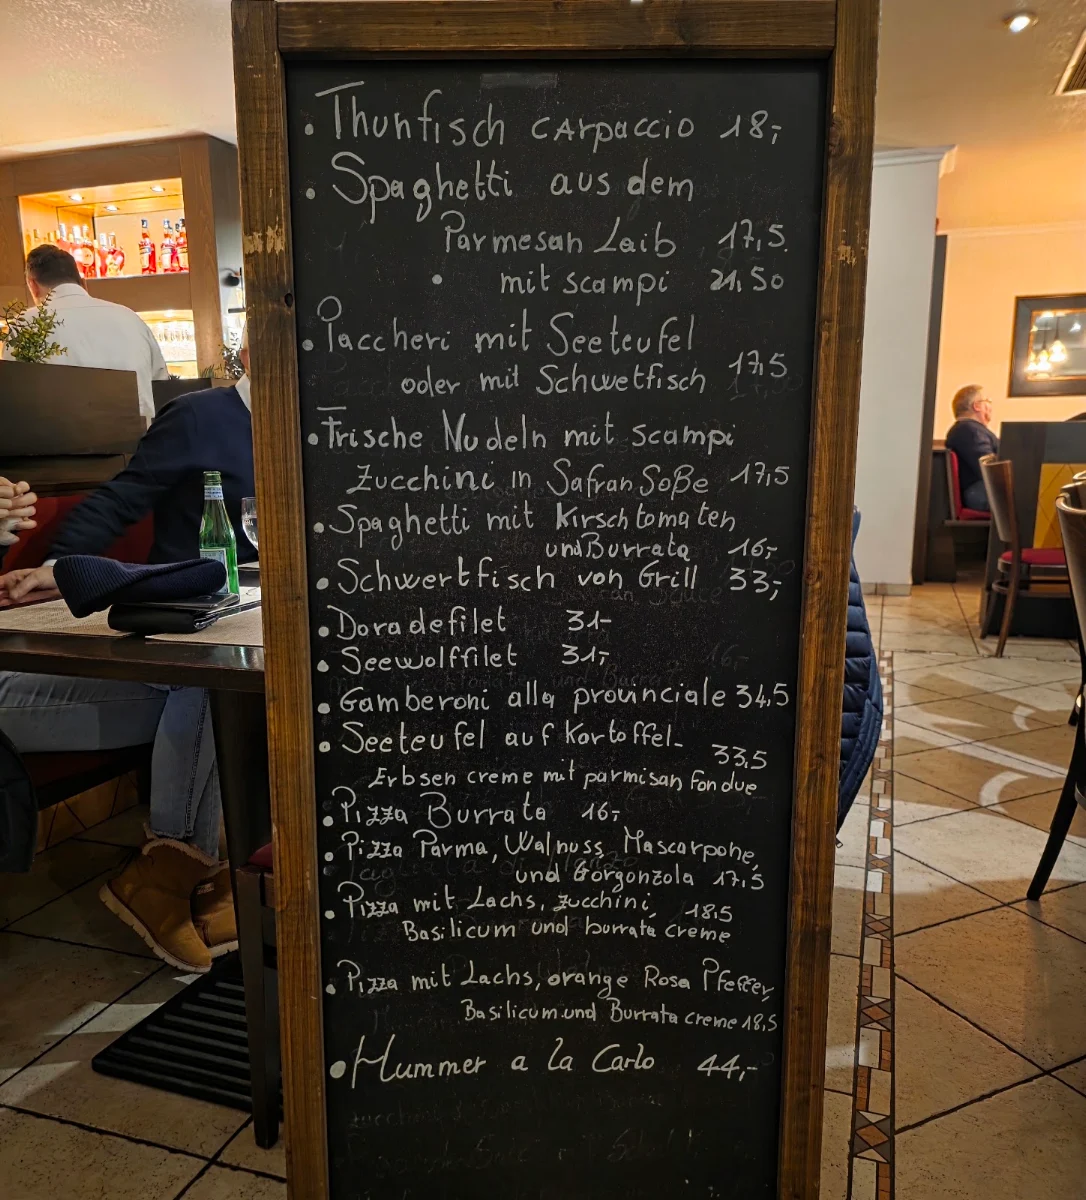 • Thunfisch carpaccio 18,-
• Spaghetti aus dem
Parmesan Laib 17,5
• mit scampi 21,50
• Paccheri mit Seeteufel
oder mit Schwetfisch 17,5
• Frische Nudeln mit scampi
Zucchini in Safran Soße 17,5
• Spaghetti mit Kirschtomaten
und Burrata 16,-
• Schwertfisch von Grill 33,-
• Doradefilet 31-
• Seewolffilet 31,-
• Gamberoni alla provinciale 34,5
• Seeteufel auf Kartoffel-
33,5
Erbsen creme mit parmisan fondue
• Pizza Burrata 16,-
• Pizza Parma, Walnuss, Mascarpone,
und Gorgonzola 17,5
• Pizza mit Lachs, zucchini, 18,5
Basilicum und burrata creme
• Pizza mit Lachs, orange Rosa Pfeffer,
Basilicum und Burrata creme 18,5
• Hummer a la Carlo 44,-